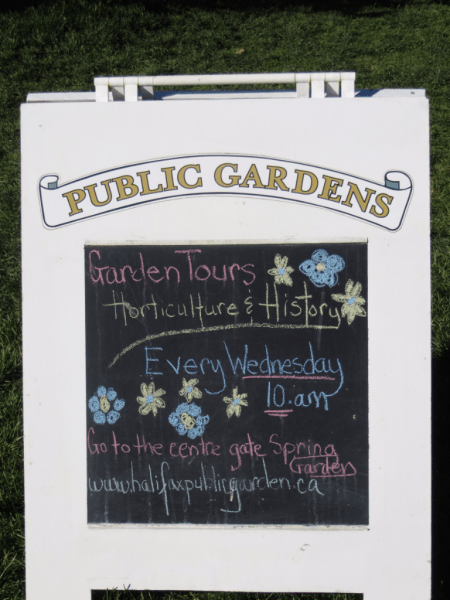 PUBLIC GARDENS
Garden Tours
Horticulture & History
Every Wednesday
10.am
Go to the centre gate Spring
Garden
www.halifaxpublicgarden.ca